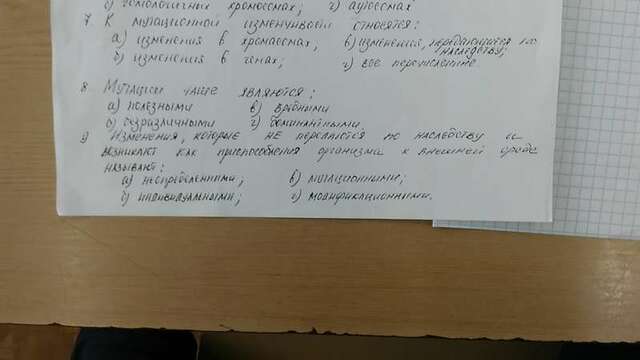 б) гомологичных хромосомах; г) аутосомах
7. К мутационной изменчивости относятся:
а) изменения в хромосомах, в) изменения, передающиеся по наследству;
б) изменения в генах; г) все перечисленные
8. Мутации чаще являются:
а) полезными в) вредными
б) безразличными г) доминантными.
9 Изменения, которые не передаются по наследству и
возникают как приспособления организма к внешней среде
называют:
а) неопределенными; в) мутационными;
б) индивидуальными; г) модификационными.